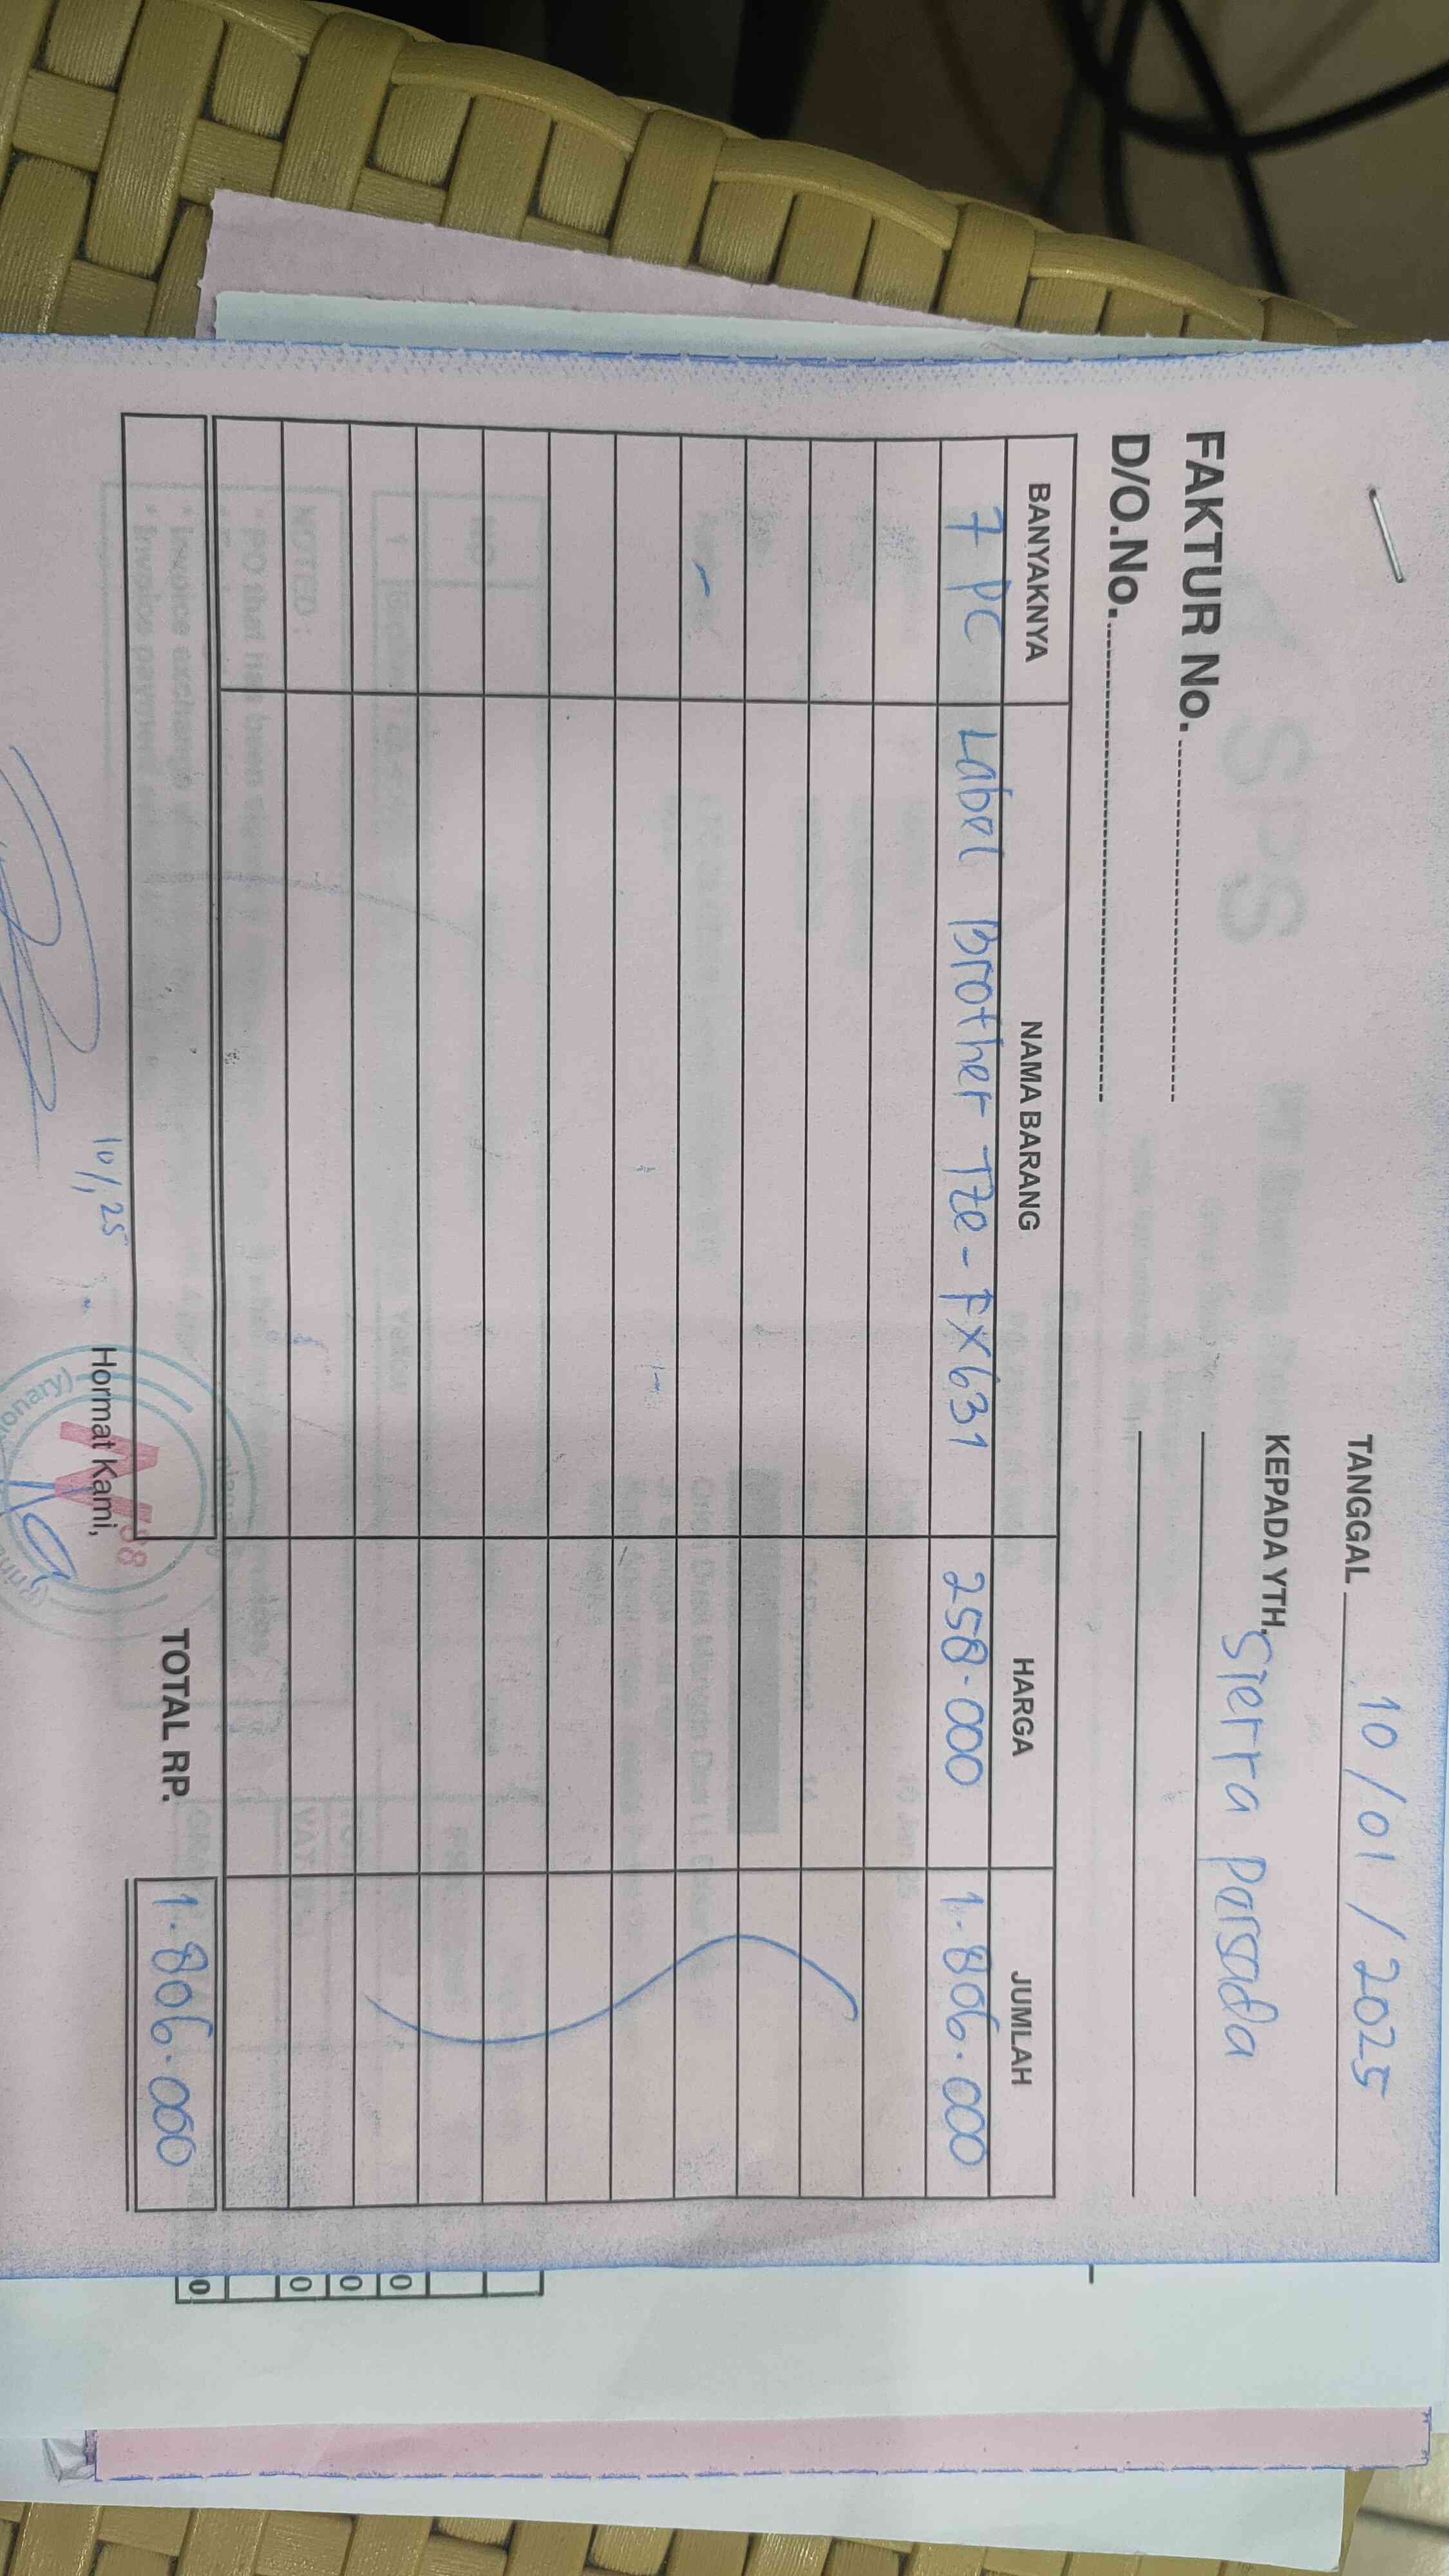 TANGGAL 10/01/2025
KEPADA YTH. Sierra Parsada
FAKTUR No.
D/O.No.
BANYAKNYA NAMA BARANG HARGA JUMLAH
7 pc Label Brother Tze-FX631 258.000 1.806.000
TOTAL RP. 1.806.000
Hormat Kami,
10/1 25